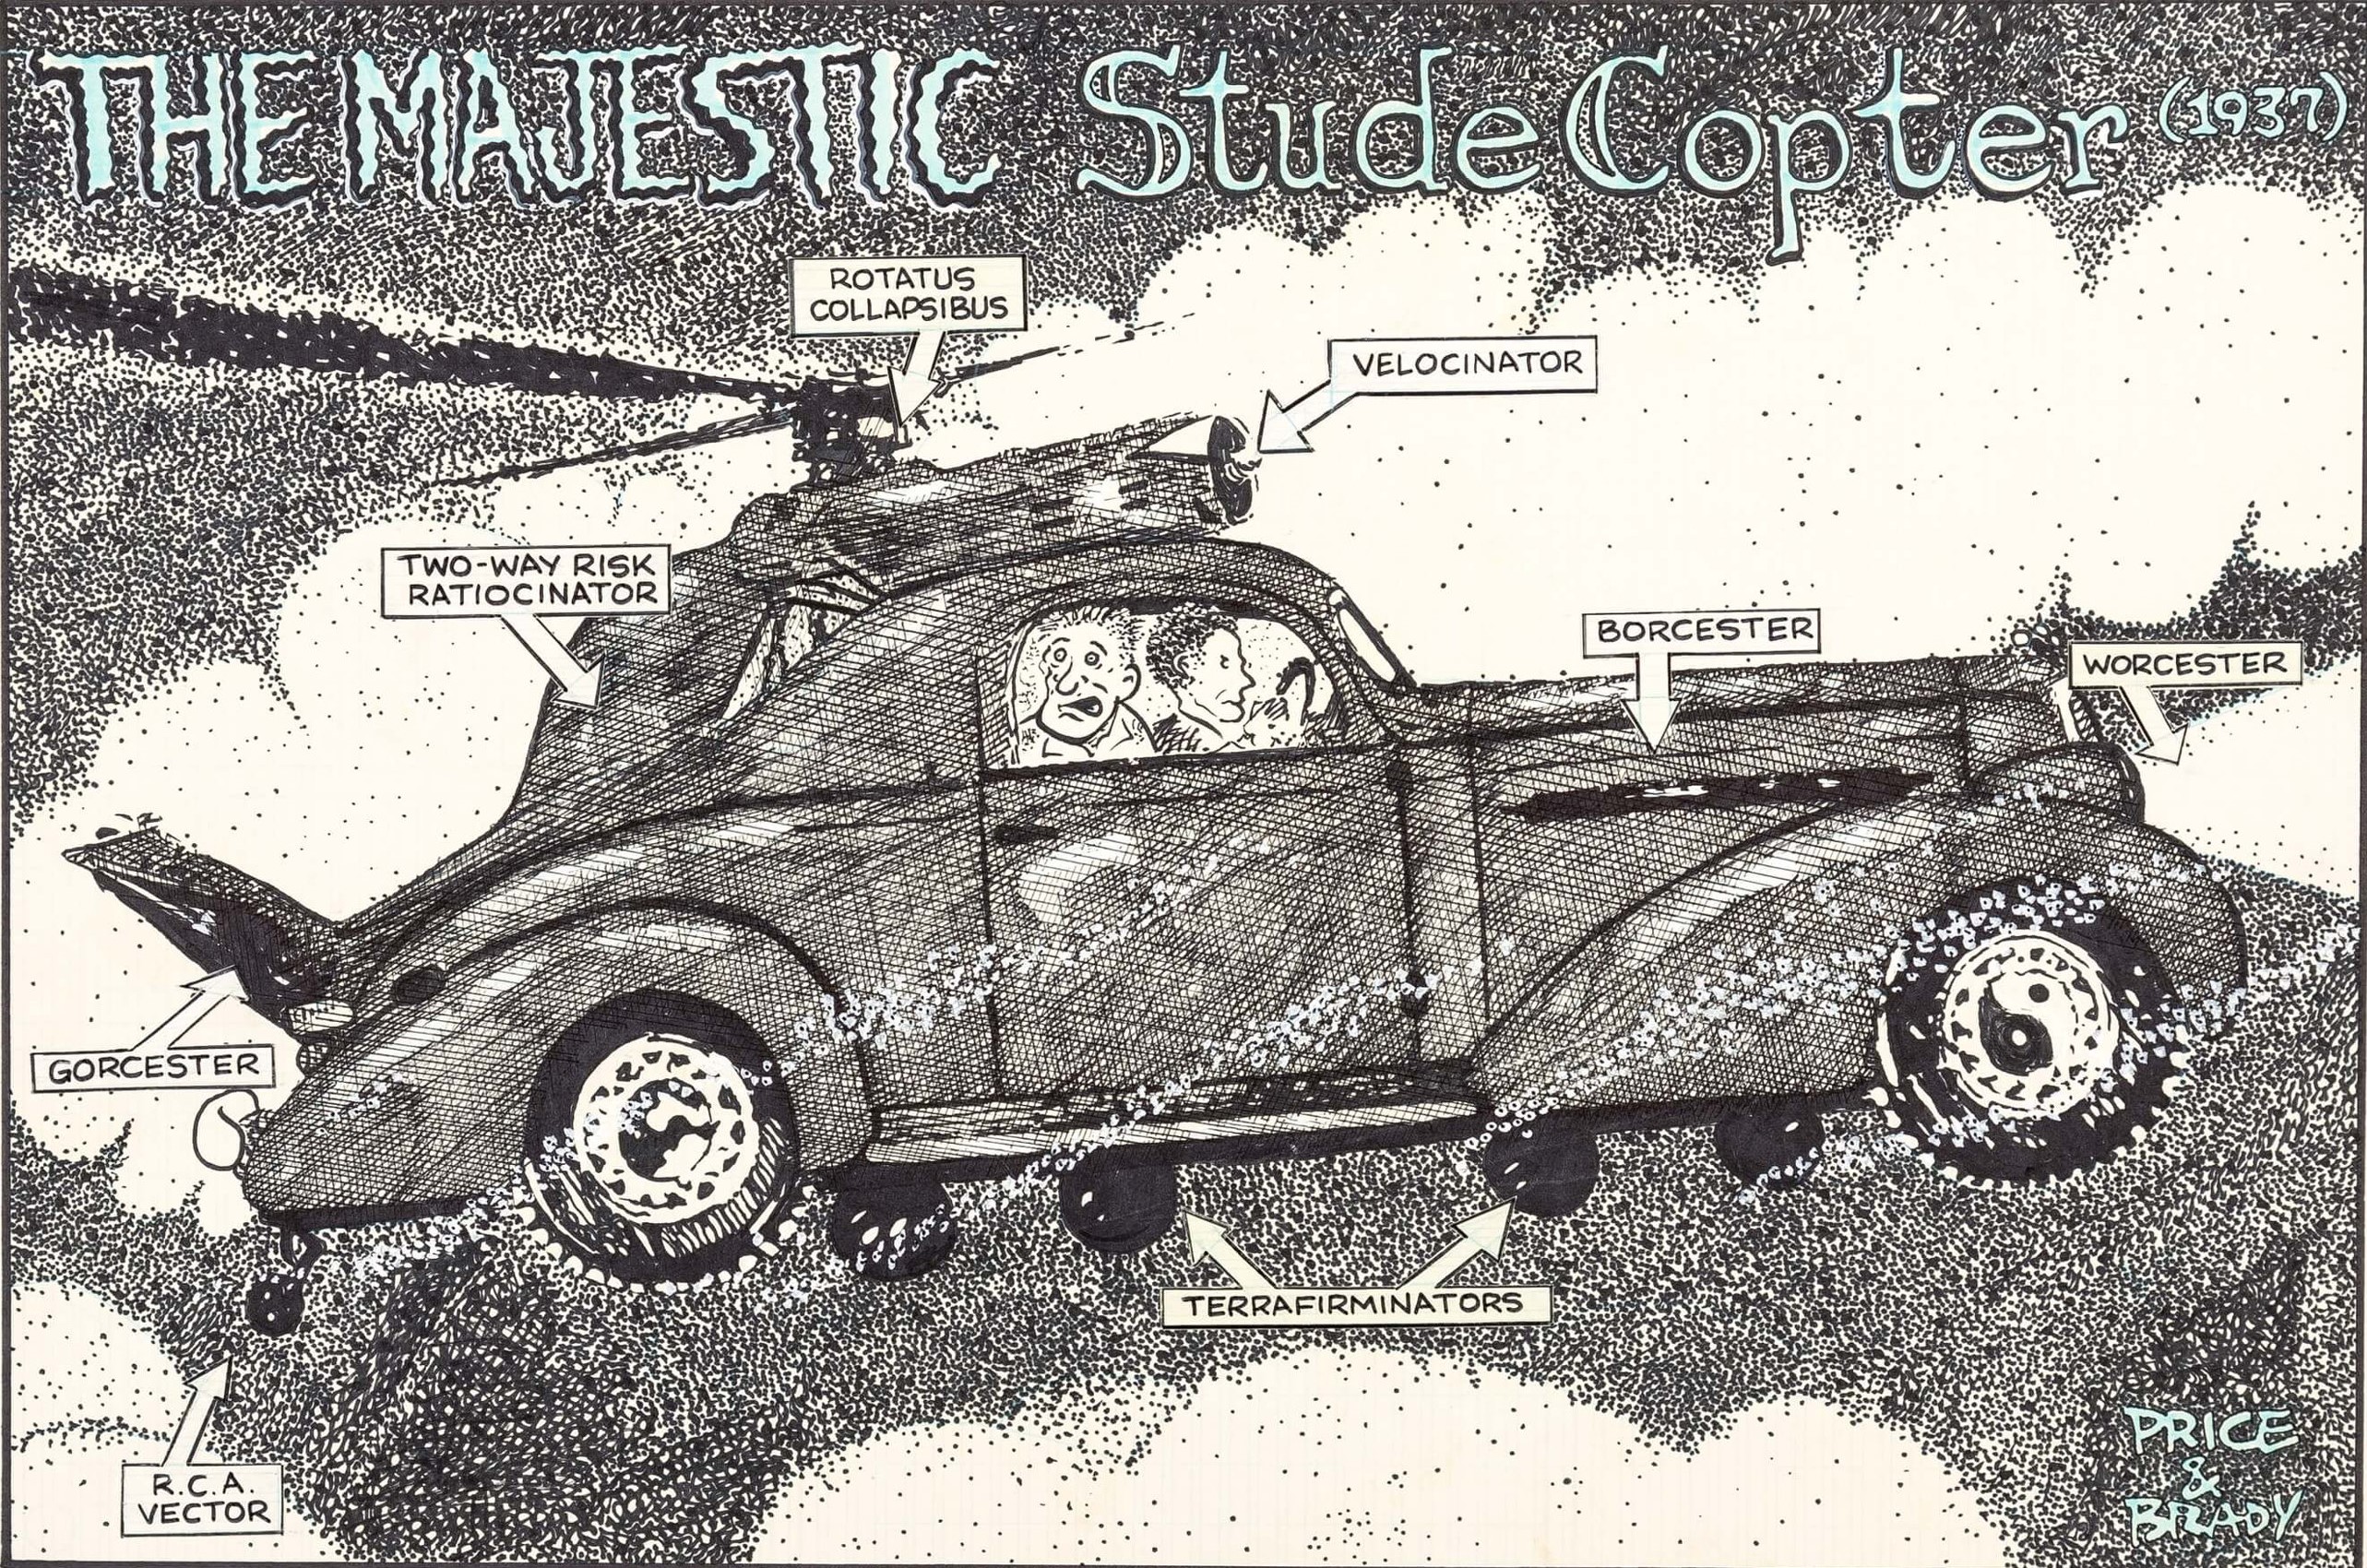 THE MAJESTIC StudeCopter (1937)
ROTATUS
COLLAPSIBUS
VELOCINATOR
TWO-WAY RISK
RATIOCINATOR
BORCESTER
WORCESTER
GORCESTER
TERRAFIRMINATORS
R.C.A.
VECTOR
PRICE
&
BRADY